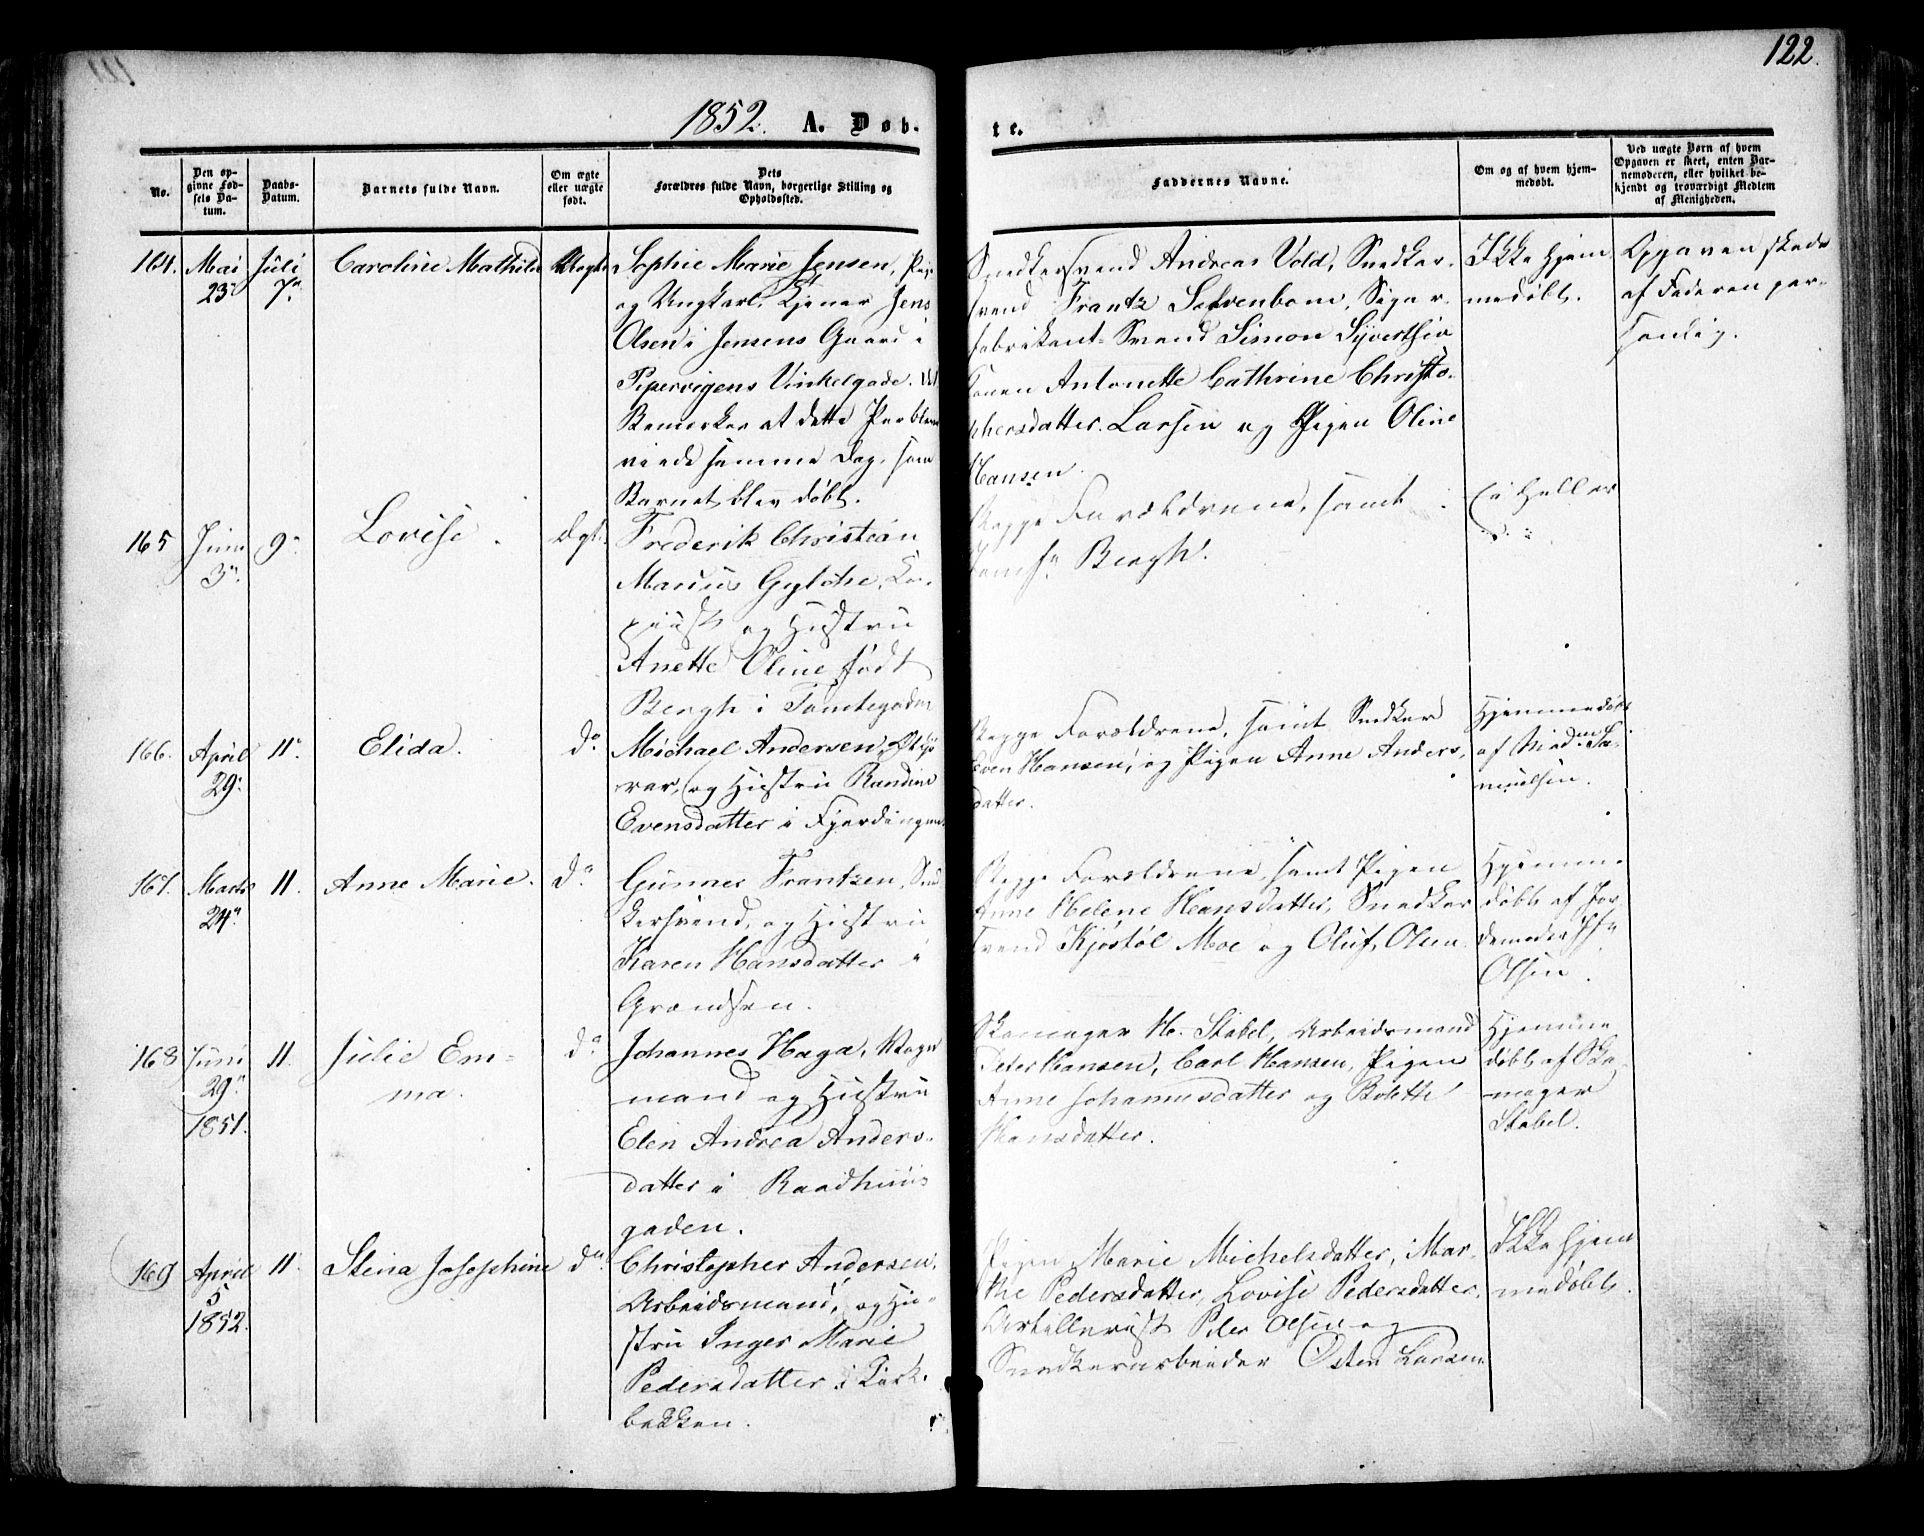 122.
1852. A. Døb-
te.
No.
Den op-
givne Fød-
sels Da-
tum.
Daabs-
Datum.
Barnets fulde Navn.
Om ægte
eller uægte
født.
Dets
Forældres fulde Navn, borgerlige Stilling og
Opholdssted.
Faddernes Navne.
Om og af hvem hjem-
medøbt.
Ved uægte Børn af hvem
Opgaven er skeet, enten Bar-
nemoderen, eller hvilket be-
kjendt og troværdigt Medlem
af Menigheden.
164. Mai
23
Juli
7
Caroline Mathilde
Uægte
Sophie Marie Jensen, Pige
og Ungkarl, Tjener Jens
Olsen i Jensens Gaard i
Pipervigens Vinkelgade.
Bemærkes at dette Par blev
viede samme Dag, som
Barnet blev døbt.
Snedkersvend Andreas Vold, Snedker-
svend Frantz
fabrikant-Svend Simon Syvertsen
Konen Antonette Cathrine Christo-
phersdatter Larsen og Pigen Oline
Hansen.
Ikke hjem
medøbt.
Opgaven skede
af Faderen per-
sonlig.
165 Juni
3
9
Lovise.
Ægt.
Frederik Christian
Marius Gylche, Ko-
piist og Hustru
Anette Oline født
Bergh i Tomtegaden
Begge Forældrene, samt
Bergh.
ei heller
166. April
29
11
Elida.
Do
Michael Andersen,
og Hustru Randine
Evensdatter i Fjerdingen.
Begge Forældrene, samt Snedker
Even Hansen, og Pigen Anne Anders-
datter.
Hjemmedøbt
af Mad. Sa-
muelsen.
167. Marts
24
11.
Anne Marie.
Do
Gunnes Frantzen, Sned
kersvend, og Hustru
Karen Hansdatter i
Grændsen.
Begge Forældrene, samt Pigen
Anne Helene Hansdatter, Snedker
svend Kjøstøl Moe og Oluf Olsen
Hjemme-
døbt af Jor-
demoder
Olsen.
168 Juni
29
1851.
11.
Julie Em-
ma.
Do
Johannes Haga, Vogn
mand og Hustru
Elen Andrea Anders-
datter i Raadhuus
gaden.
Skomager H. Stabel, Arbeidsmand
Peter Hansen, Carl Hansen, Pigen
Anne Johannesdatter og Bolette
Hansdatter.
Hjemme
døbt af Sko-
mager
Stabel.
169 April
5
1852.
11.
Stina Josephine
Do
Christopher Andersen,
Arbeidsmand, og Hu-
stru Inger Marie
Pedersdatter i
bakken.
Pigen Marie Michelsdatter, Mar-
the Pedersdatter, Lovise Pedersdatter,
Artillerist Peder Olsen og
Snedkerarbeider Østen Larsen
Ikke hjem
medøbt.